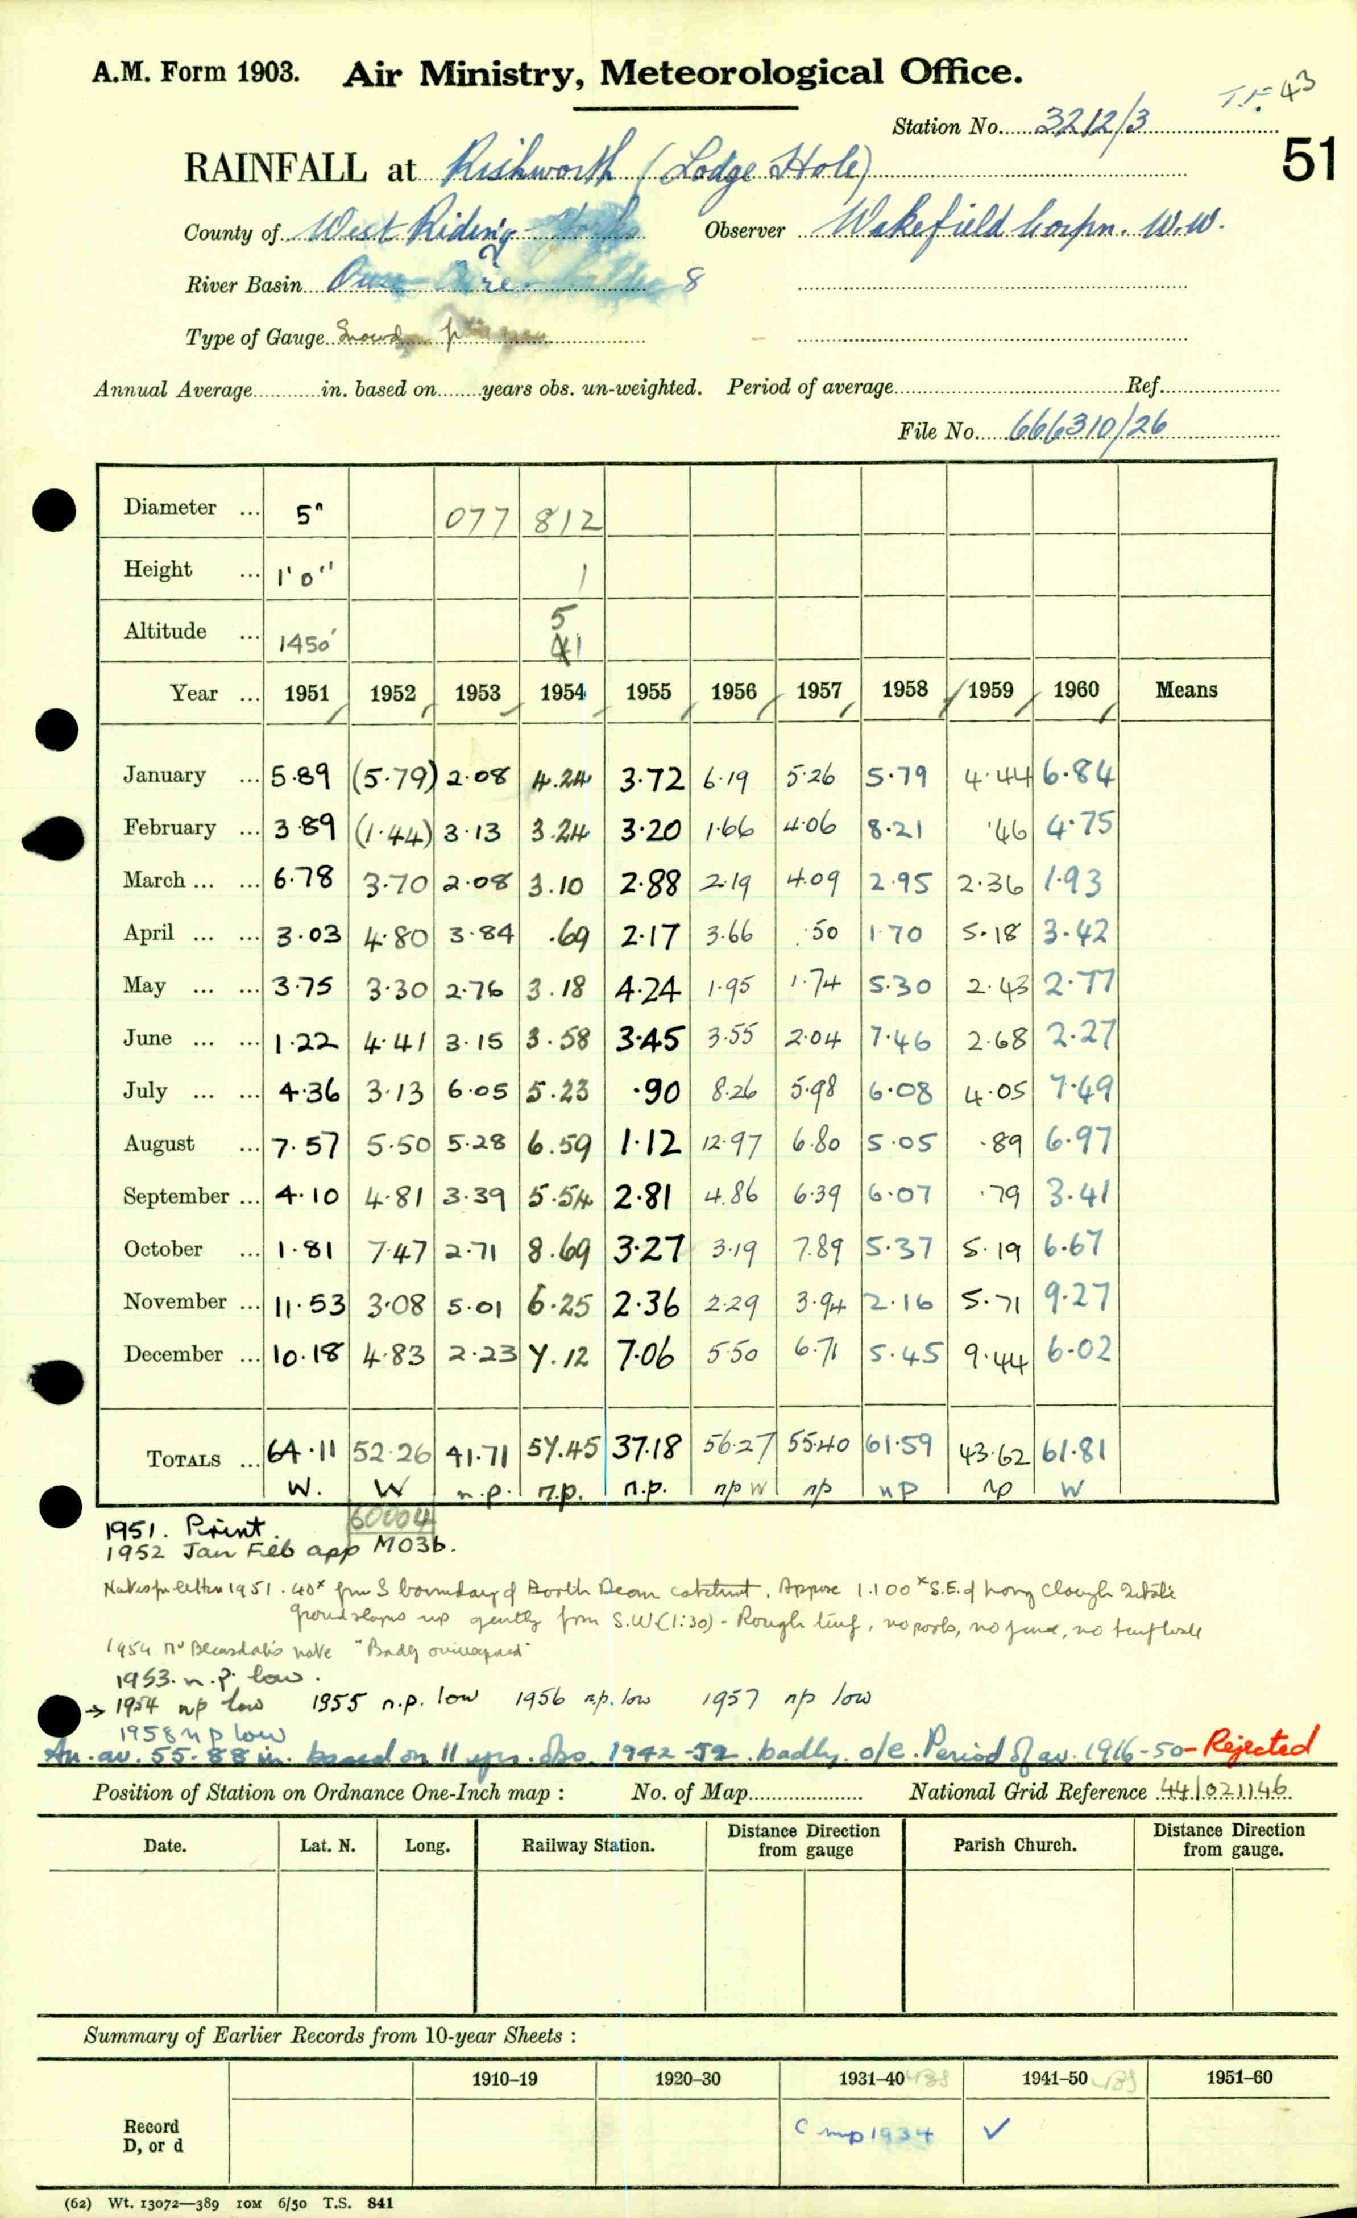 A.M. Form 1903. Air Ministry, Meteorological Office.
T.F. 43
Station No. 3212/3
51
RAINFALL at Rishworth (Lodge Hole)
County of West Riding Yorks Observer Wakefield Corpn. W.W.
River Basin Ouse Aire 8
Type of Gauge Snowdon
Annual Average in. based on years obs. un-weighted. Period of average Ref.
File No. 666310/26
Diameter ... 5" 077 812
Height ... 1'0" 1
Altitude ... 1450' 5 41
Year ... 1951 1952 1953 1954 1955 1956 1957 1958 1959 1960 Means
January ... 5.89 (5.79) 2.08 4.24 3.72 6.19 5.26 5.79 4.44 6.84
February ... 3.89 (1.44) 3.13 3.24 3.20 1.66 4.06 8.21 .46 4.75
March ... ... 6.78 3.70 2.08 3.10 2.88 2.19 4.09 2.95 2.36 1.93
April ... ... 3.03 4.80 3.84 .69 2.17 3.66 .50 1.70 5.18 3.42
May ... ... 3.75 3.30 2.76 3.18 4.24 1.95 1.74 5.30 2.43 2.77
June ... ... 1.22 4.41 3.15 3.58 3.45 3.55 2.04 7.46 2.68 2.27
July ... ... 4.36 3.13 6.05 5.23 .90 8.26 5.98 6.08 4.05 7.49
August ... 7.57 5.50 5.28 6.59 1.12 12.97 6.80 5.05 .89 6.97
September ... 4.10 4.81 3.39 5.54 2.81 4.86 6.39 6.07 .79 3.41
October ... 1.81 7.47 2.71 8.69 3.27 3.19 7.89 5.37 5.19 6.67
November ... 11.53 3.08 5.01 6.25 2.36 2.29 3.94 2.16 5.71 9.27
December ... 10.18 4.83 2.23 7.12 7.06 5.50 6.71 5.45 9.44 6.02
TOTALS ... 64.11 52.26 41.71 57.45 37.18 56.27 55.40 61.59 43.62 61.81
W. W n.p. n.p. n.p. np W np np np W
60004
1951. Print.
1952 Jan Feb app M03b.
1951. 40x from S boundary of Booth Dean catchment. Approx 1.100x S.E. of Long Clough
ground slopes up gently from S.W (1:30) - Rough turf, no pools, no fence, no turf wall
1954 Mr note "Badly
1953. n.p. low.
→ 1954 np low 1955 n.p. low 1956 n.p. low 1957 np low
1958 n p low
An. av. 55.88 in. based on 11 yrs. obs. 1942-52. badly o/e. Period of av. 1916-50 - Rejected
Position of Station on Ordnance One-Inch map : No. of Map National Grid Reference 44/021146
Date. Lat. N. Long. Railway Station. Distance from Direction gauge Parish Church. Distance from Direction gauge.
Summary of Earlier Records from 10-year Sheets :
1910–19 1920–30 1931–40 1941–50 1951–60
Record D, or d C mp 1934 ✓
(62) Wt. 13072—389 10M 6/50 T.S. 841